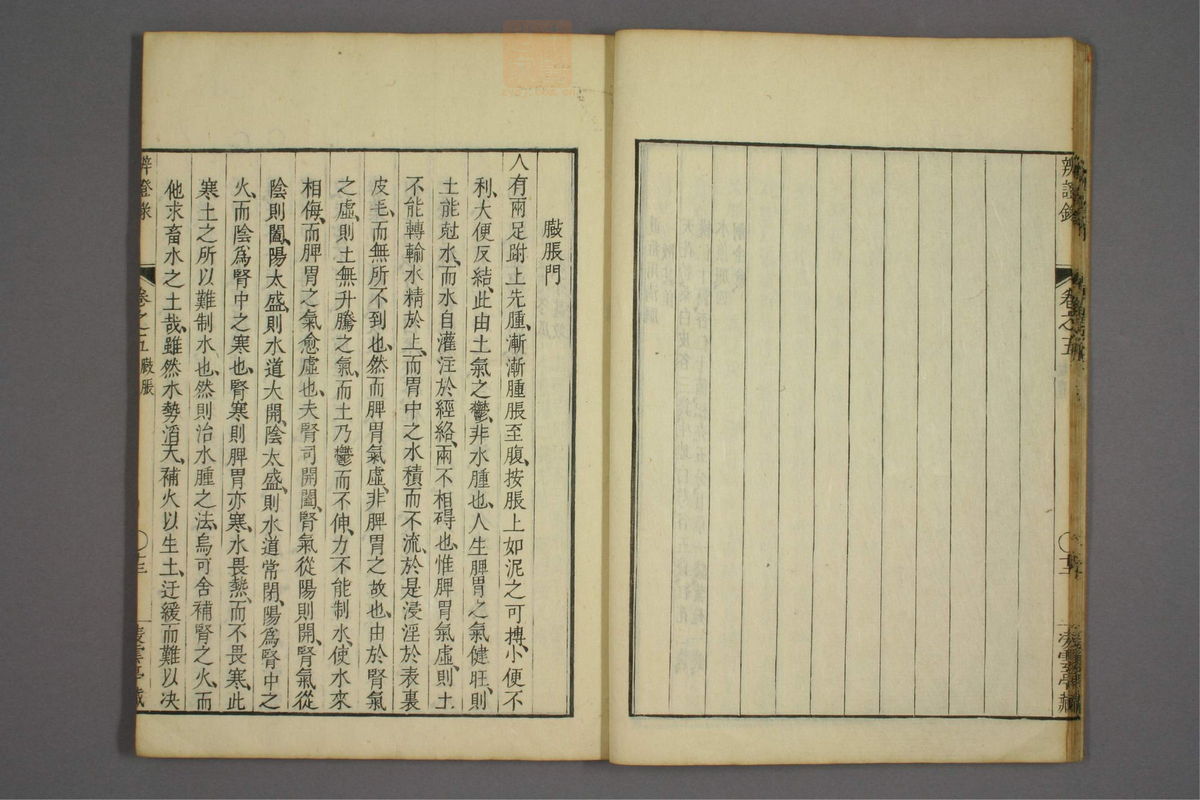 辨證錄 卷之五 凌雲亭藏
臌脹門
人有兩足跗上先腫漸漸腫脹至腹按脹上如泥之可摶小便不
利大便反結此由土氣之鬱非水腫也人生脾胃之氣健旺則
土能尅水而水自灌注於經絡兩不相碍也惟脾胃氣虛則土
不能轉輸水精於上而胃中之水積而不流於是浸淫於表裏
皮毛而無所不到也然而脾胃氣虛非脾胃之故也由於腎氣
之虛則土無升騰之氣而土乃鬱而不伸力不能制水使水來
相侮而脾胃之氣愈虛也夫腎司開闔腎氣從陽則開腎氣從
陰則闔陽太盛則水道大開陰太盛則水道常閉陽爲腎中之
火而陰爲腎中之寒也腎寒則脾胃亦寒水畏熱而不畏寒此
寒土之所以難制水也然則治水腫之法烏可舍補腎之火而
他求畜水之土哉雖然水勢滔天補火以生土迂緩而難以决
辨證錄 卷之五 臌脹 十三 凌雲亭藏